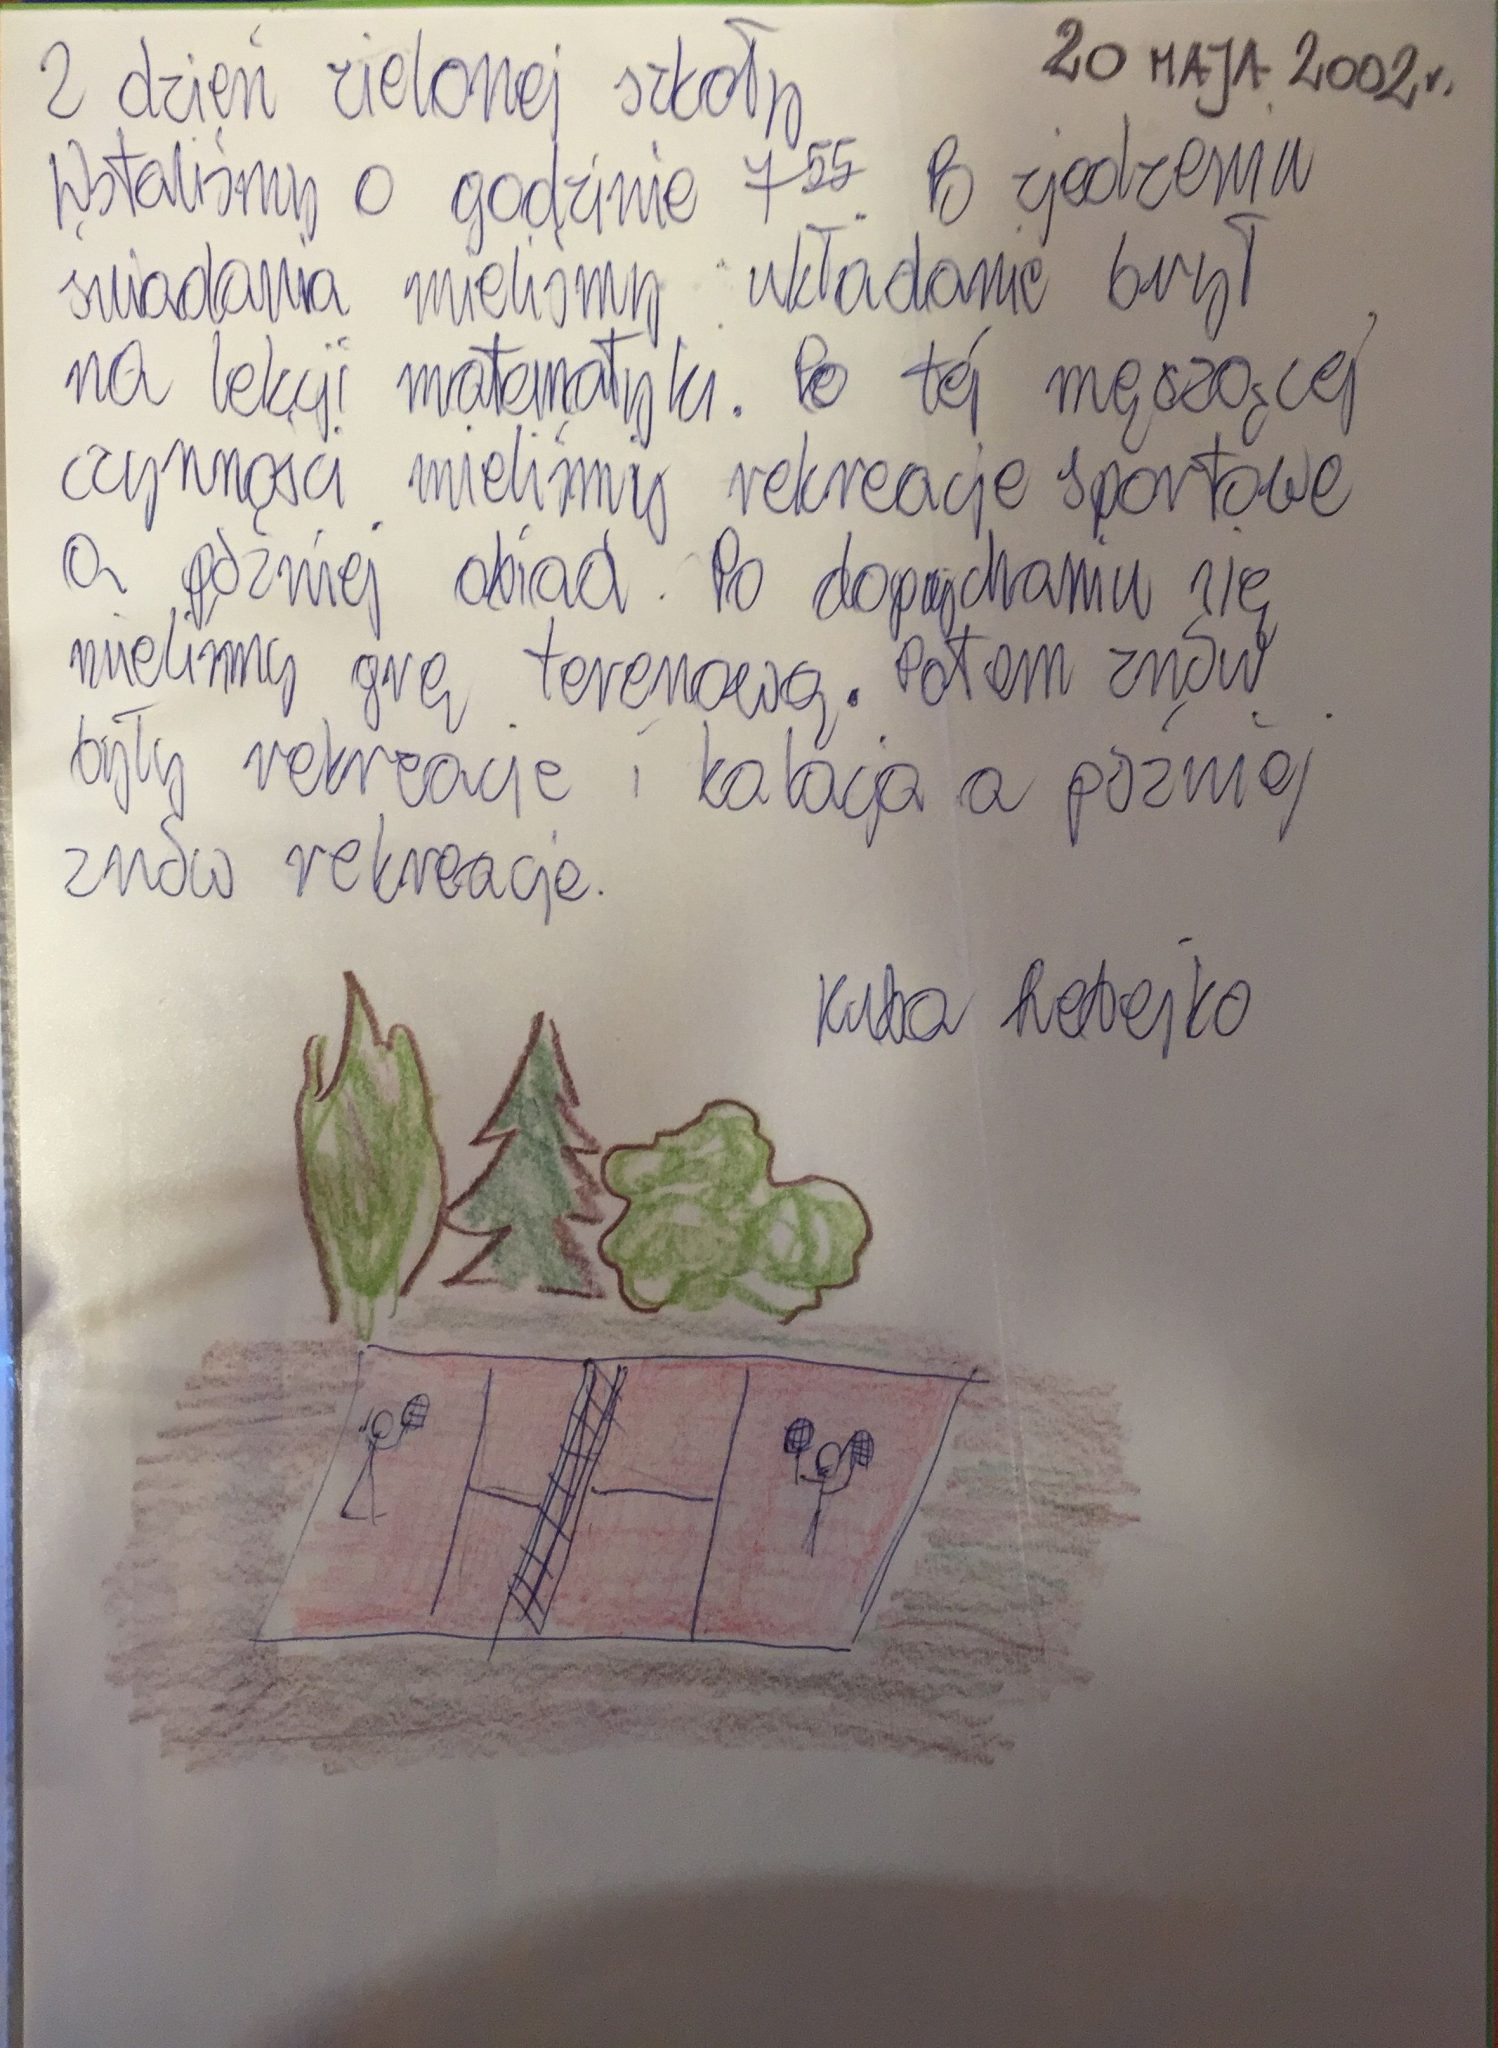 2 dzień zielonej szkoły 20 MAJA 2002r.
Wstaliśmy o godzinie 7 55. Po zjedzeniu
śniadania mieliśmy układanie brył
na lekcji matematyki. Po tej męszącej
czynności mieliśmy rekreacje sportowe
a później obiad. Po dopychaniu się
mieliśmy grę terenową. Potem znów
były rekreacje i kolacja a później
znów rekreacje.
Kuba Lebejko